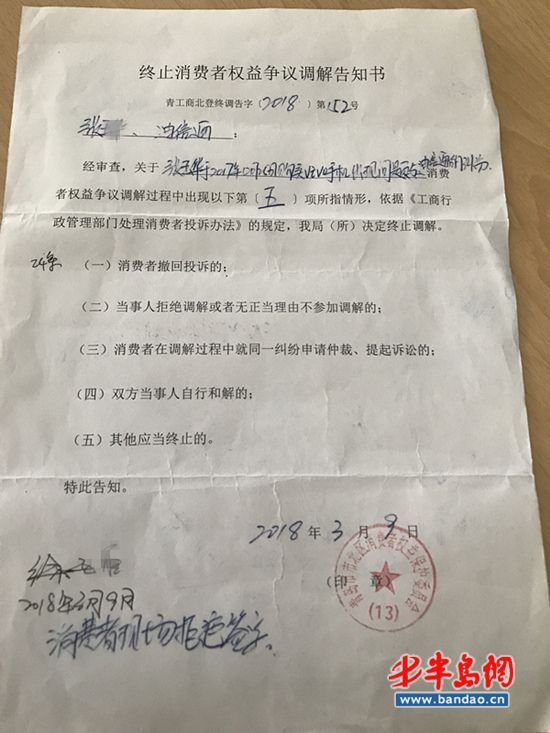 终止消费者权益争议调解告知书
青工商北登终调告字（2018）第152号
张
：
经审查，关于
消费
者权益争议调解过程中出现以下第（五）项所指情形，依据《工商行
政管理部门处理消费者投诉办法》的规定，我局（所）决定终止调解。
24条
（一）消费者撤回投诉的；
（二）当事人拒绝调解或者无正当理由不参加调解的；
（三）消费者在调解过程中就同一纠纷申请仲裁、提起诉讼的；
（四）双方当事人自行和解的；
（五）其他应当终止的。
特此告知。
2018年3月9日
（印 章）
青岛市市北区消费者权益保护委员会
(13)
2018年3月9日
消费者现场拒绝签字.
半岛网
www.bandao.cn